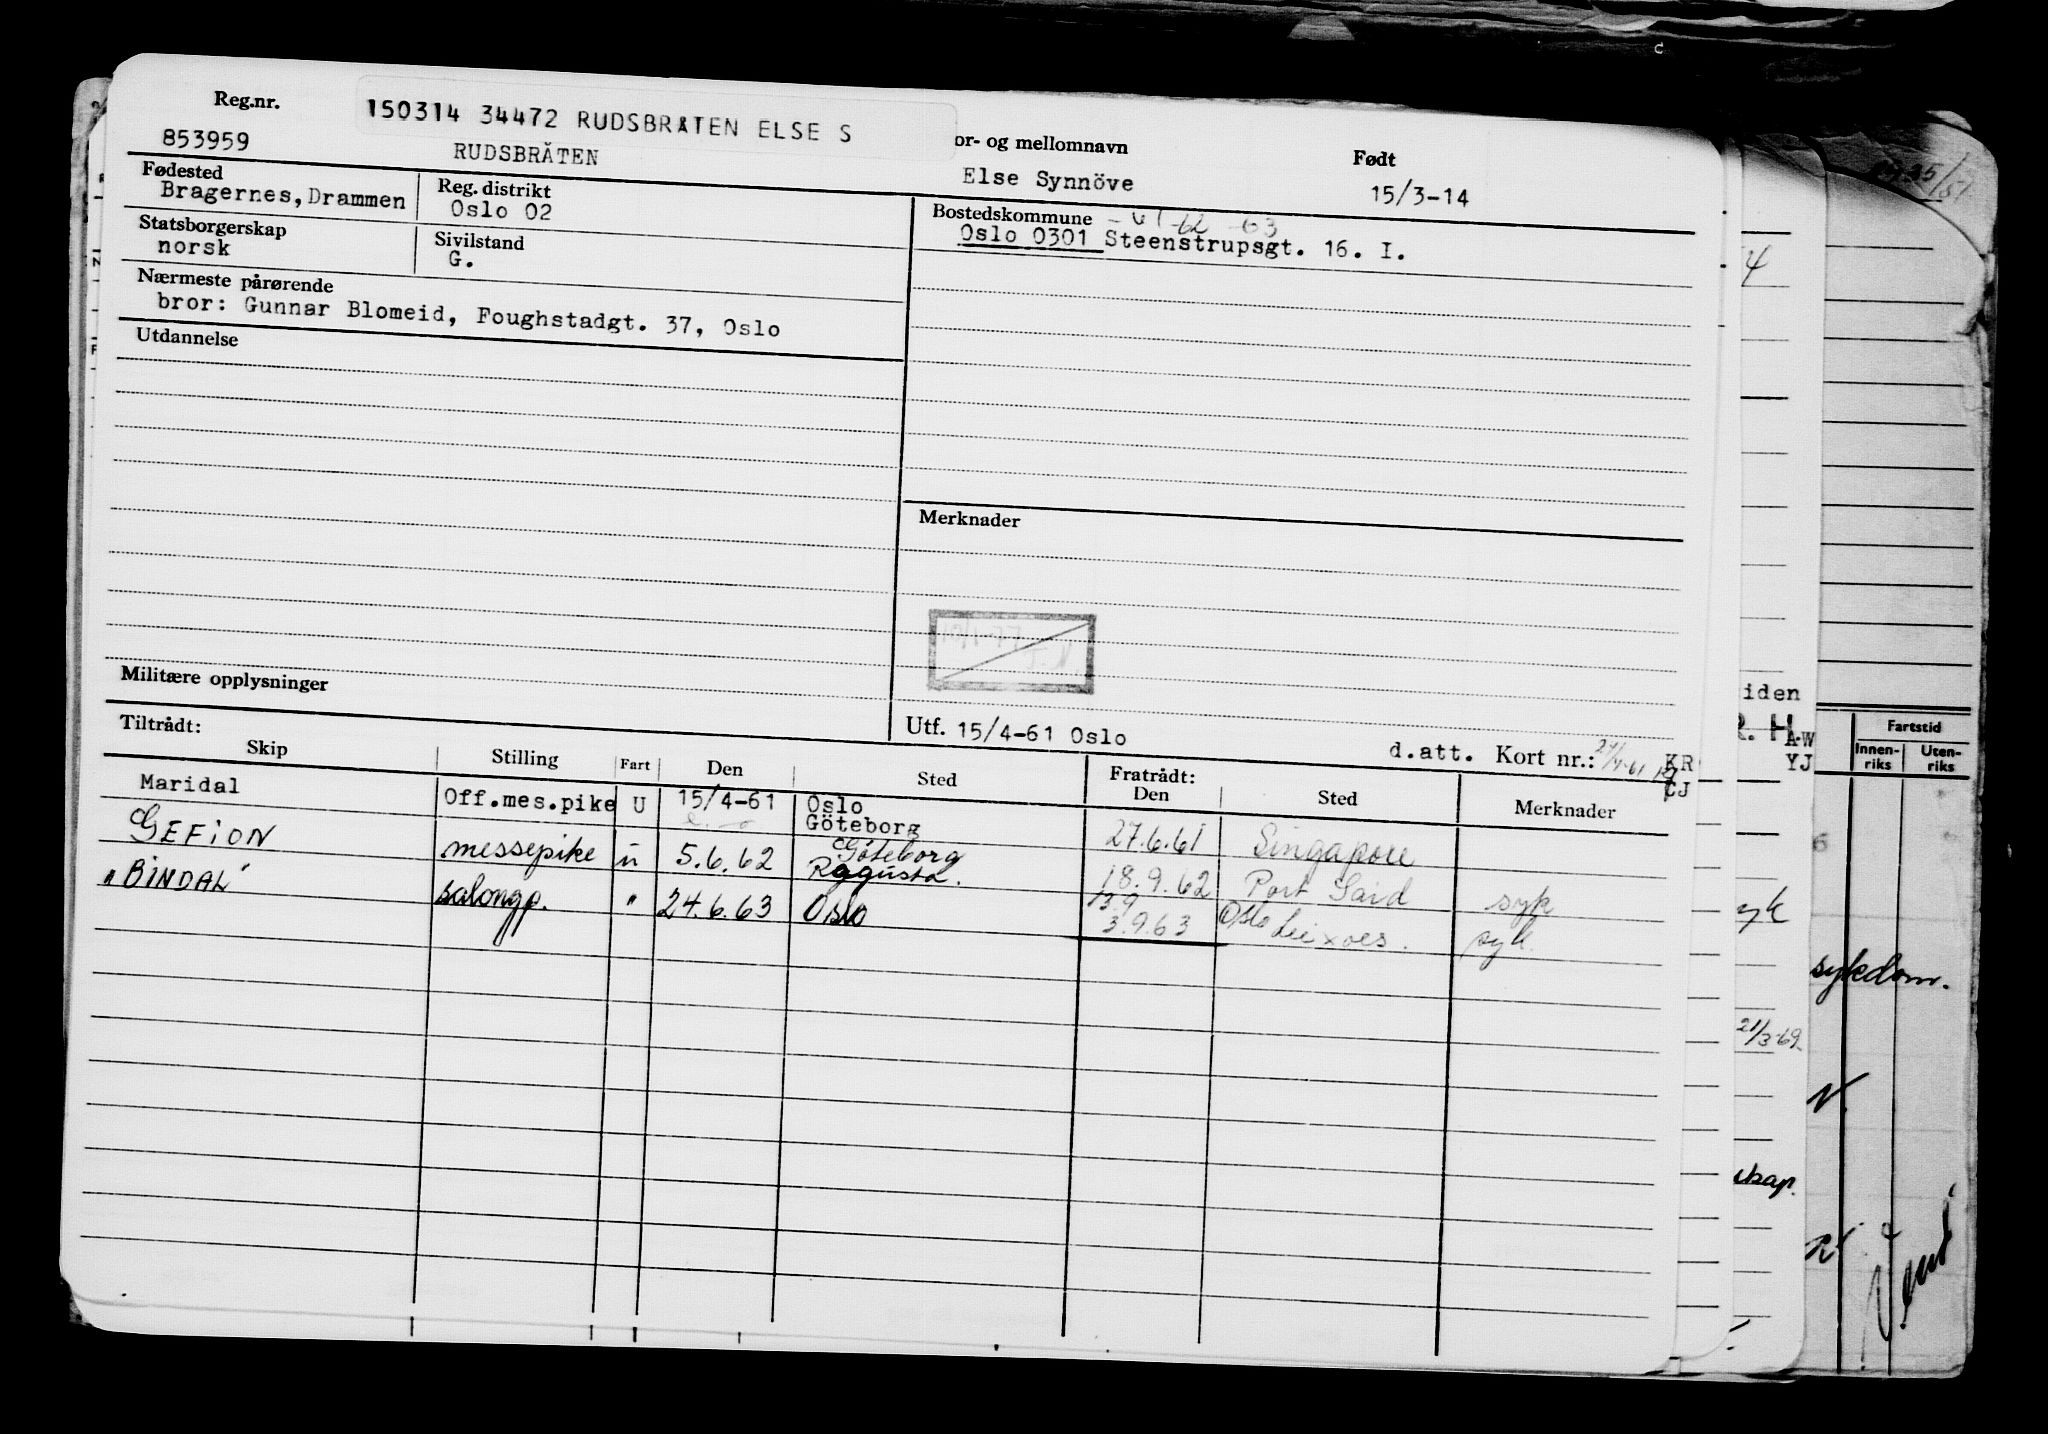 Reg.nr.
150314 34472 RUDSBRÅTEN ELSE S
or- og mellomnavn
Født
853959
RUDSBRÅTEN
Else Synnöve
15/3-14
Fødested
Bragernes, Drammen
Reg. distrikt
Oslo 02
Bostedskommune -61-62-63
Oslo 0301 Steenstrupsgt. 16. I.
Statsborgerskap
norsk
Sivilstand
G.
Nærmeste pårørende
bror: Gunnar Blomeid, Foughstadgt. 37, Oslo
Utdannelse
Merknader
Militære opplysninger
Utf. 15/4-61 Oslo
d.att. Kort nr.:
KR
CJ
Tiltrådt:
Skip Stilling Fart Den Sted Fratrådt: Den Sted Merknader
Maridal Off.mes.pike U 15/4-61 Oslo
Göteborg 27.6.61 Singapore
GEFION messepike u 5.6.62 Göteborg
18.9.62 Port Said syk
"BINDAL" salongp. " 24.6.63 Oslo 13.9 Oslo
3.9.63 Leixoes. syk.
iden
R. H.
A-W
YJ
Fartstid
Innen-
riks
Uten-
riks
yk
sykdom.
21/3-69
N.
skap.